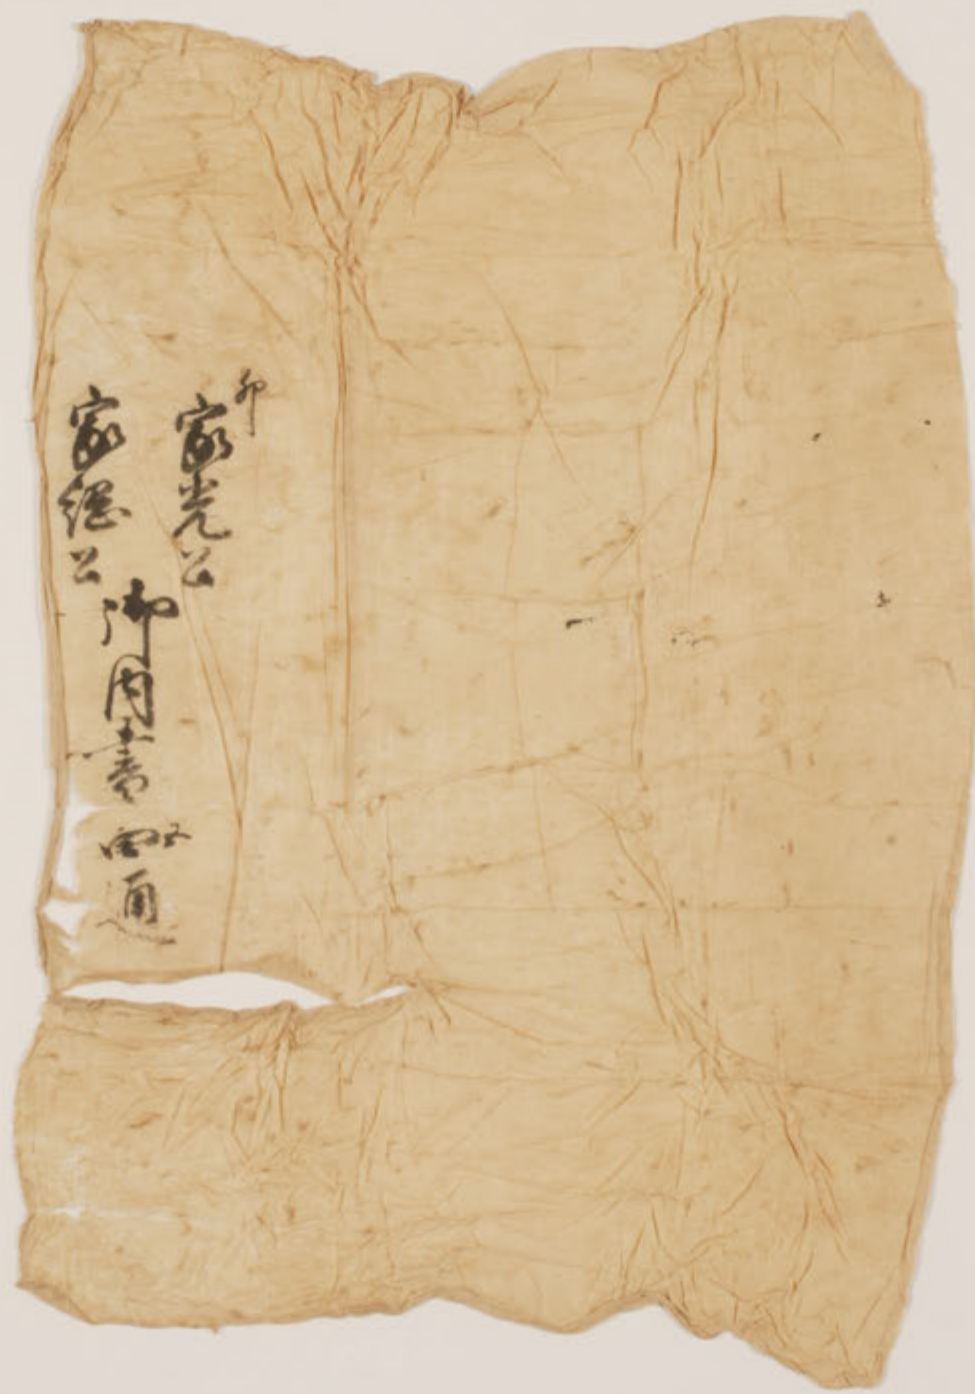 卯
家光公
家綱公
御内書四通